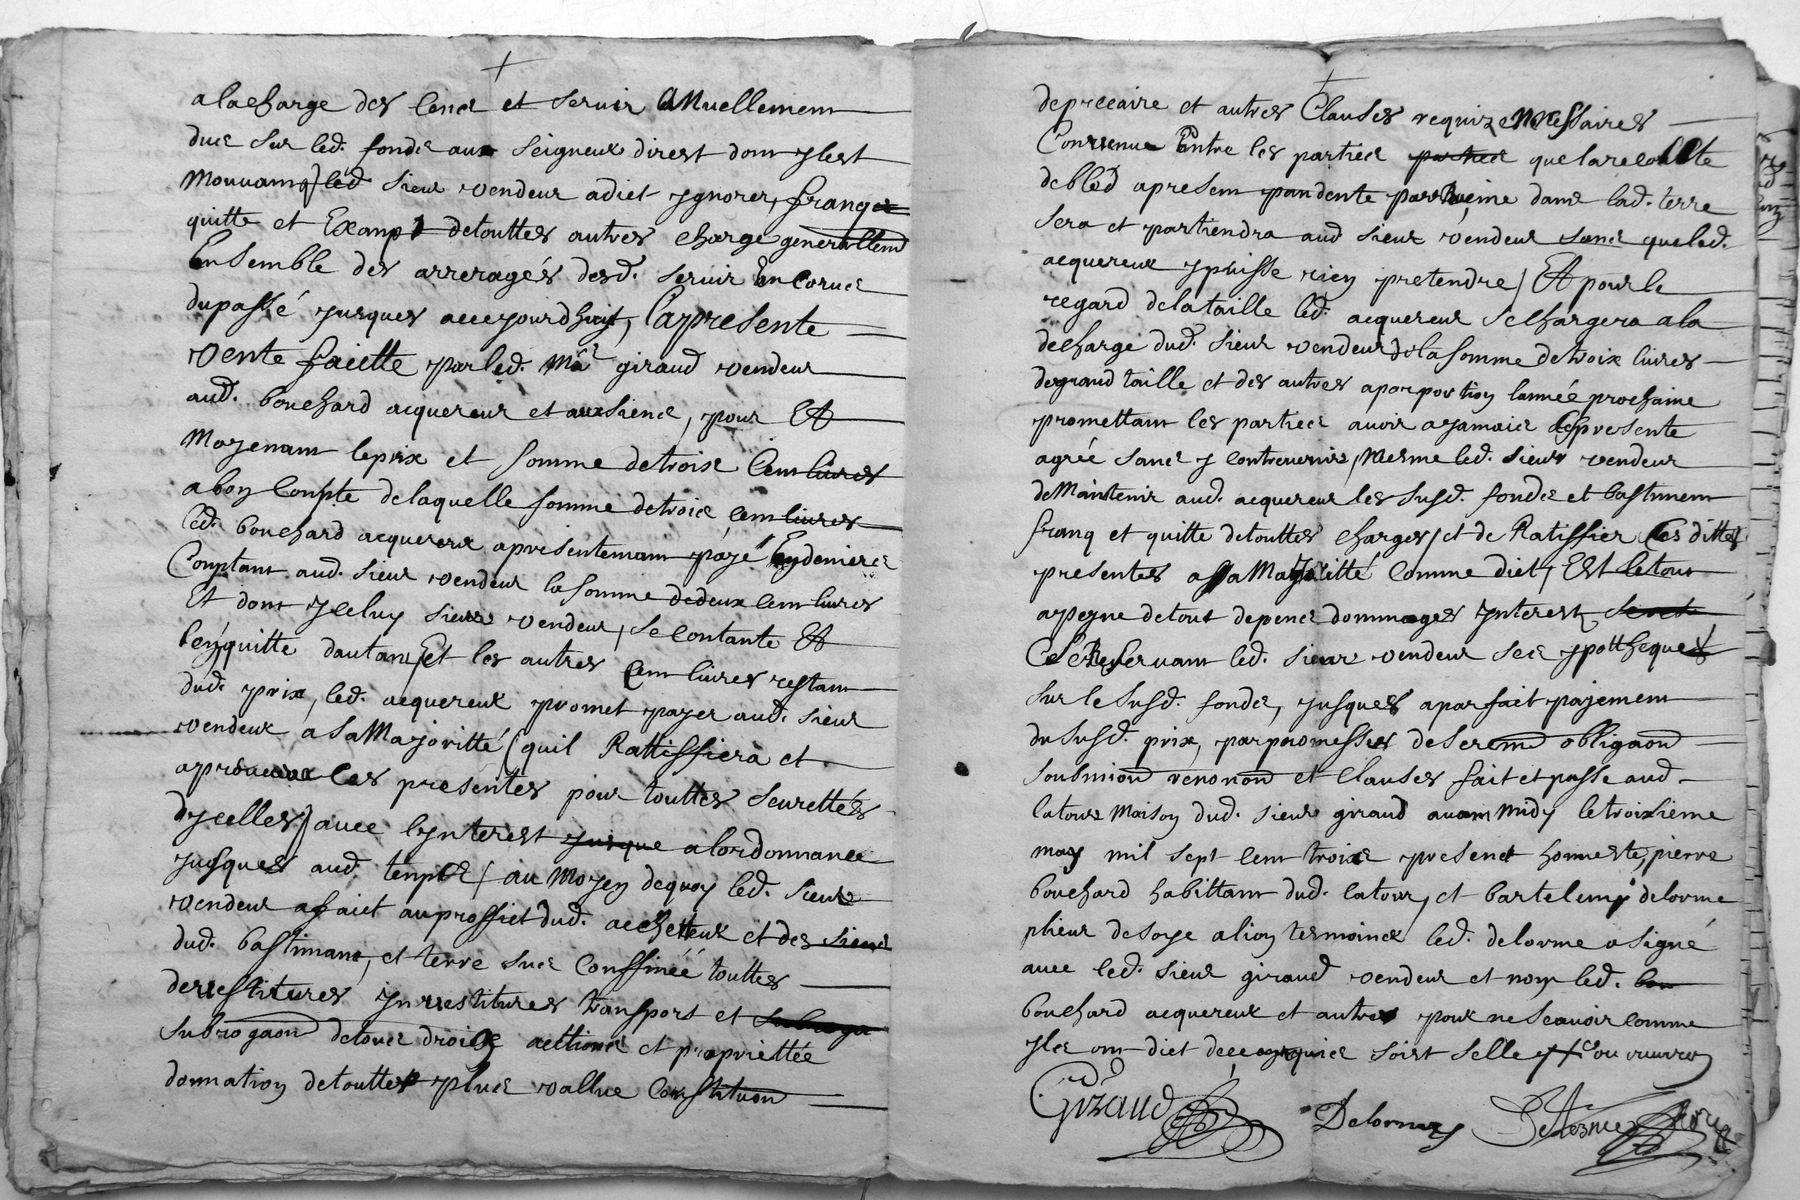 alacharge des cens et servis annuellement
dus sur led. fonds aux seigneur direct dont ylest
mouvants led sieur vendeur adict ygnorer, franq
quitte et Exampt detouttes autres charge generallemt
Ensemble des arreragés desd. servis Encorus
dupassé jusques acejourdhuy, Lapresente
vente faictte par led. Mre giraud vendeur
aud. bouchard acquereur et auxsiens, pour Et
Moyenant leprix et somme detrois Cent livres
abon Conpte delaquelle somme detrois cent livres
led. bouchard acquereur apresentemant payé Endeniers
Comptant aud. sieur vendeur la somme dedeux cent livres
Et dont yceluy sieur vendeur, se contante Et
lenquitte dautant, Et les autres Cent livres restant
dud. prix, led. acquereur promet payer aud. sieur
vendeur a sa Majoritté (quil Rattiffiera et
aprouvera les presentes pour touttes seurettés
dycelles) avec lynterest jusque alordonnance
jusques aud. temps / au Moyen dequoy led. sieur
vendeur a faict auproffict dud. achetteur et des siens
dud. bastimant, et terre sus conffinéé touttes
devestitures ynvestitures transports et subroga
subrogaon detous droicts acttions et propriettée
donnation detouttes plus vallue Constituon
deprecaire et autres Clauses requizes necessaires
Convenue Entre les parties parties que larecolte
debled apresent pandente parracine dans lad. terre
sera et partiendra aud sieur vendeur sans queled.
acquereur ypuisse rien pretendre / Et pour le
regard delataille led. acquereur sechargera ala
decharge dud. sieur vendeur dela somme detroix livres
degrand taille et des autres aporportion lannée prochaine
promettant les parties avoir ajamais lapresente
agréé sans y contrevenir, Mesme led. sieur vendeur
deMaintenir aud. acquereur les susd. fonds et bastiment
franq et quitte detouttes charges / et de Ratiffier Ces dittes
presentes a sa Majoritté comme dict, Et letout
apeyne detout depens dommages ynterest,
Ce Reservant led. sieur vendeur ses ypotheques
sur le susd. fonds, jusques aparfait payement
du susd. prix, parpromesses deserемt obligaon
soubmion renonon et Clauses fait et passe aud
latour Maison dud. sieur giraud avant midy letroixieme
may mil sept cent trois presents honneste pierre
bouchard habittant dud. latour, et bartelemy delorme
plieur desoye alion tesmoins led. delorme a signé
avec led. sieur giraud vendeur et non led. bou
bouchard acquereur et autres pour ne scavoir comme
yls ont dict
Giraud Delorme